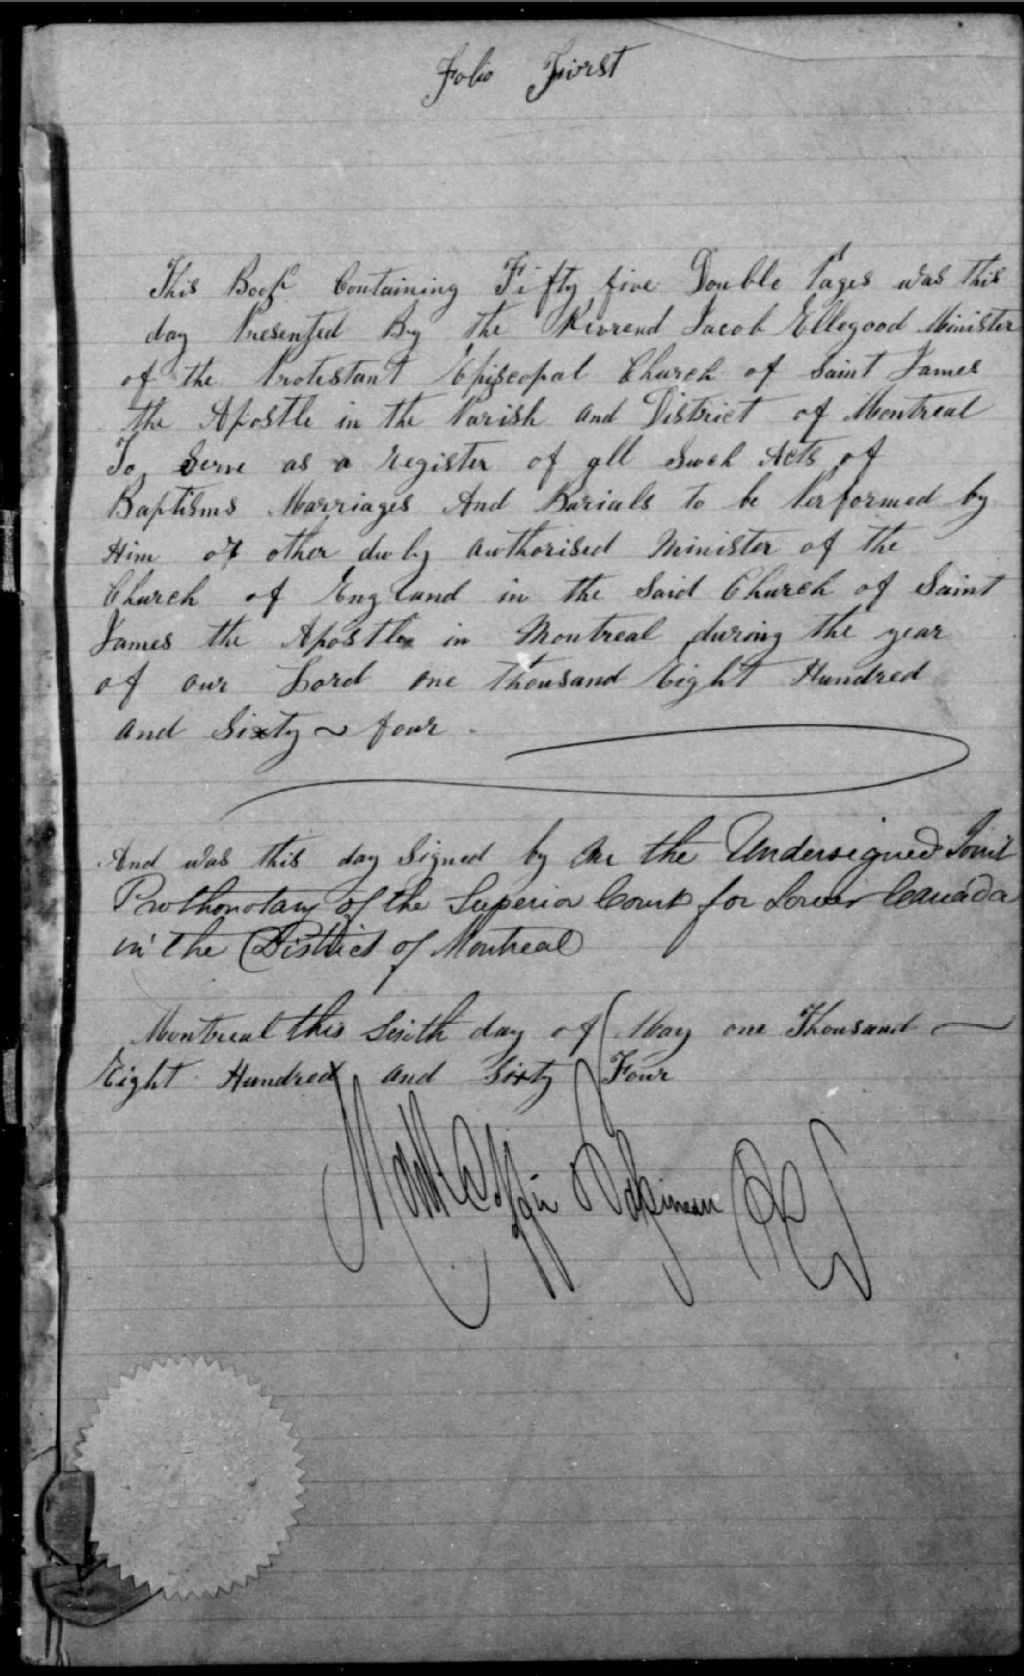 Folio First
This Book Containing Fifty five Double Pages was this
day Presented By the Revrend Jacob Ellegood Minister
of the Protestant Episcopal Church of Saint James
the Apostle in the Parish and District of Montreal
To Serve as a register of all Such Acts of
Baptisms Marriages And Burials to be Performed by
Him or other duly authorised Minister of the
Church of England in the Said Church of Saint
James the Apostle in Montreal during the year
of our Lord one thousand Eight Hundred
and Sixty ~ four
And was this day Signed by me the Undersigned Joint
Prothonotary of the Superior Court for Lower Canada
in the District of Montreal
Montreal this Sixth day of May one Thousand
Eight Hundred and Sixty Four
Monk Coffin Papineau